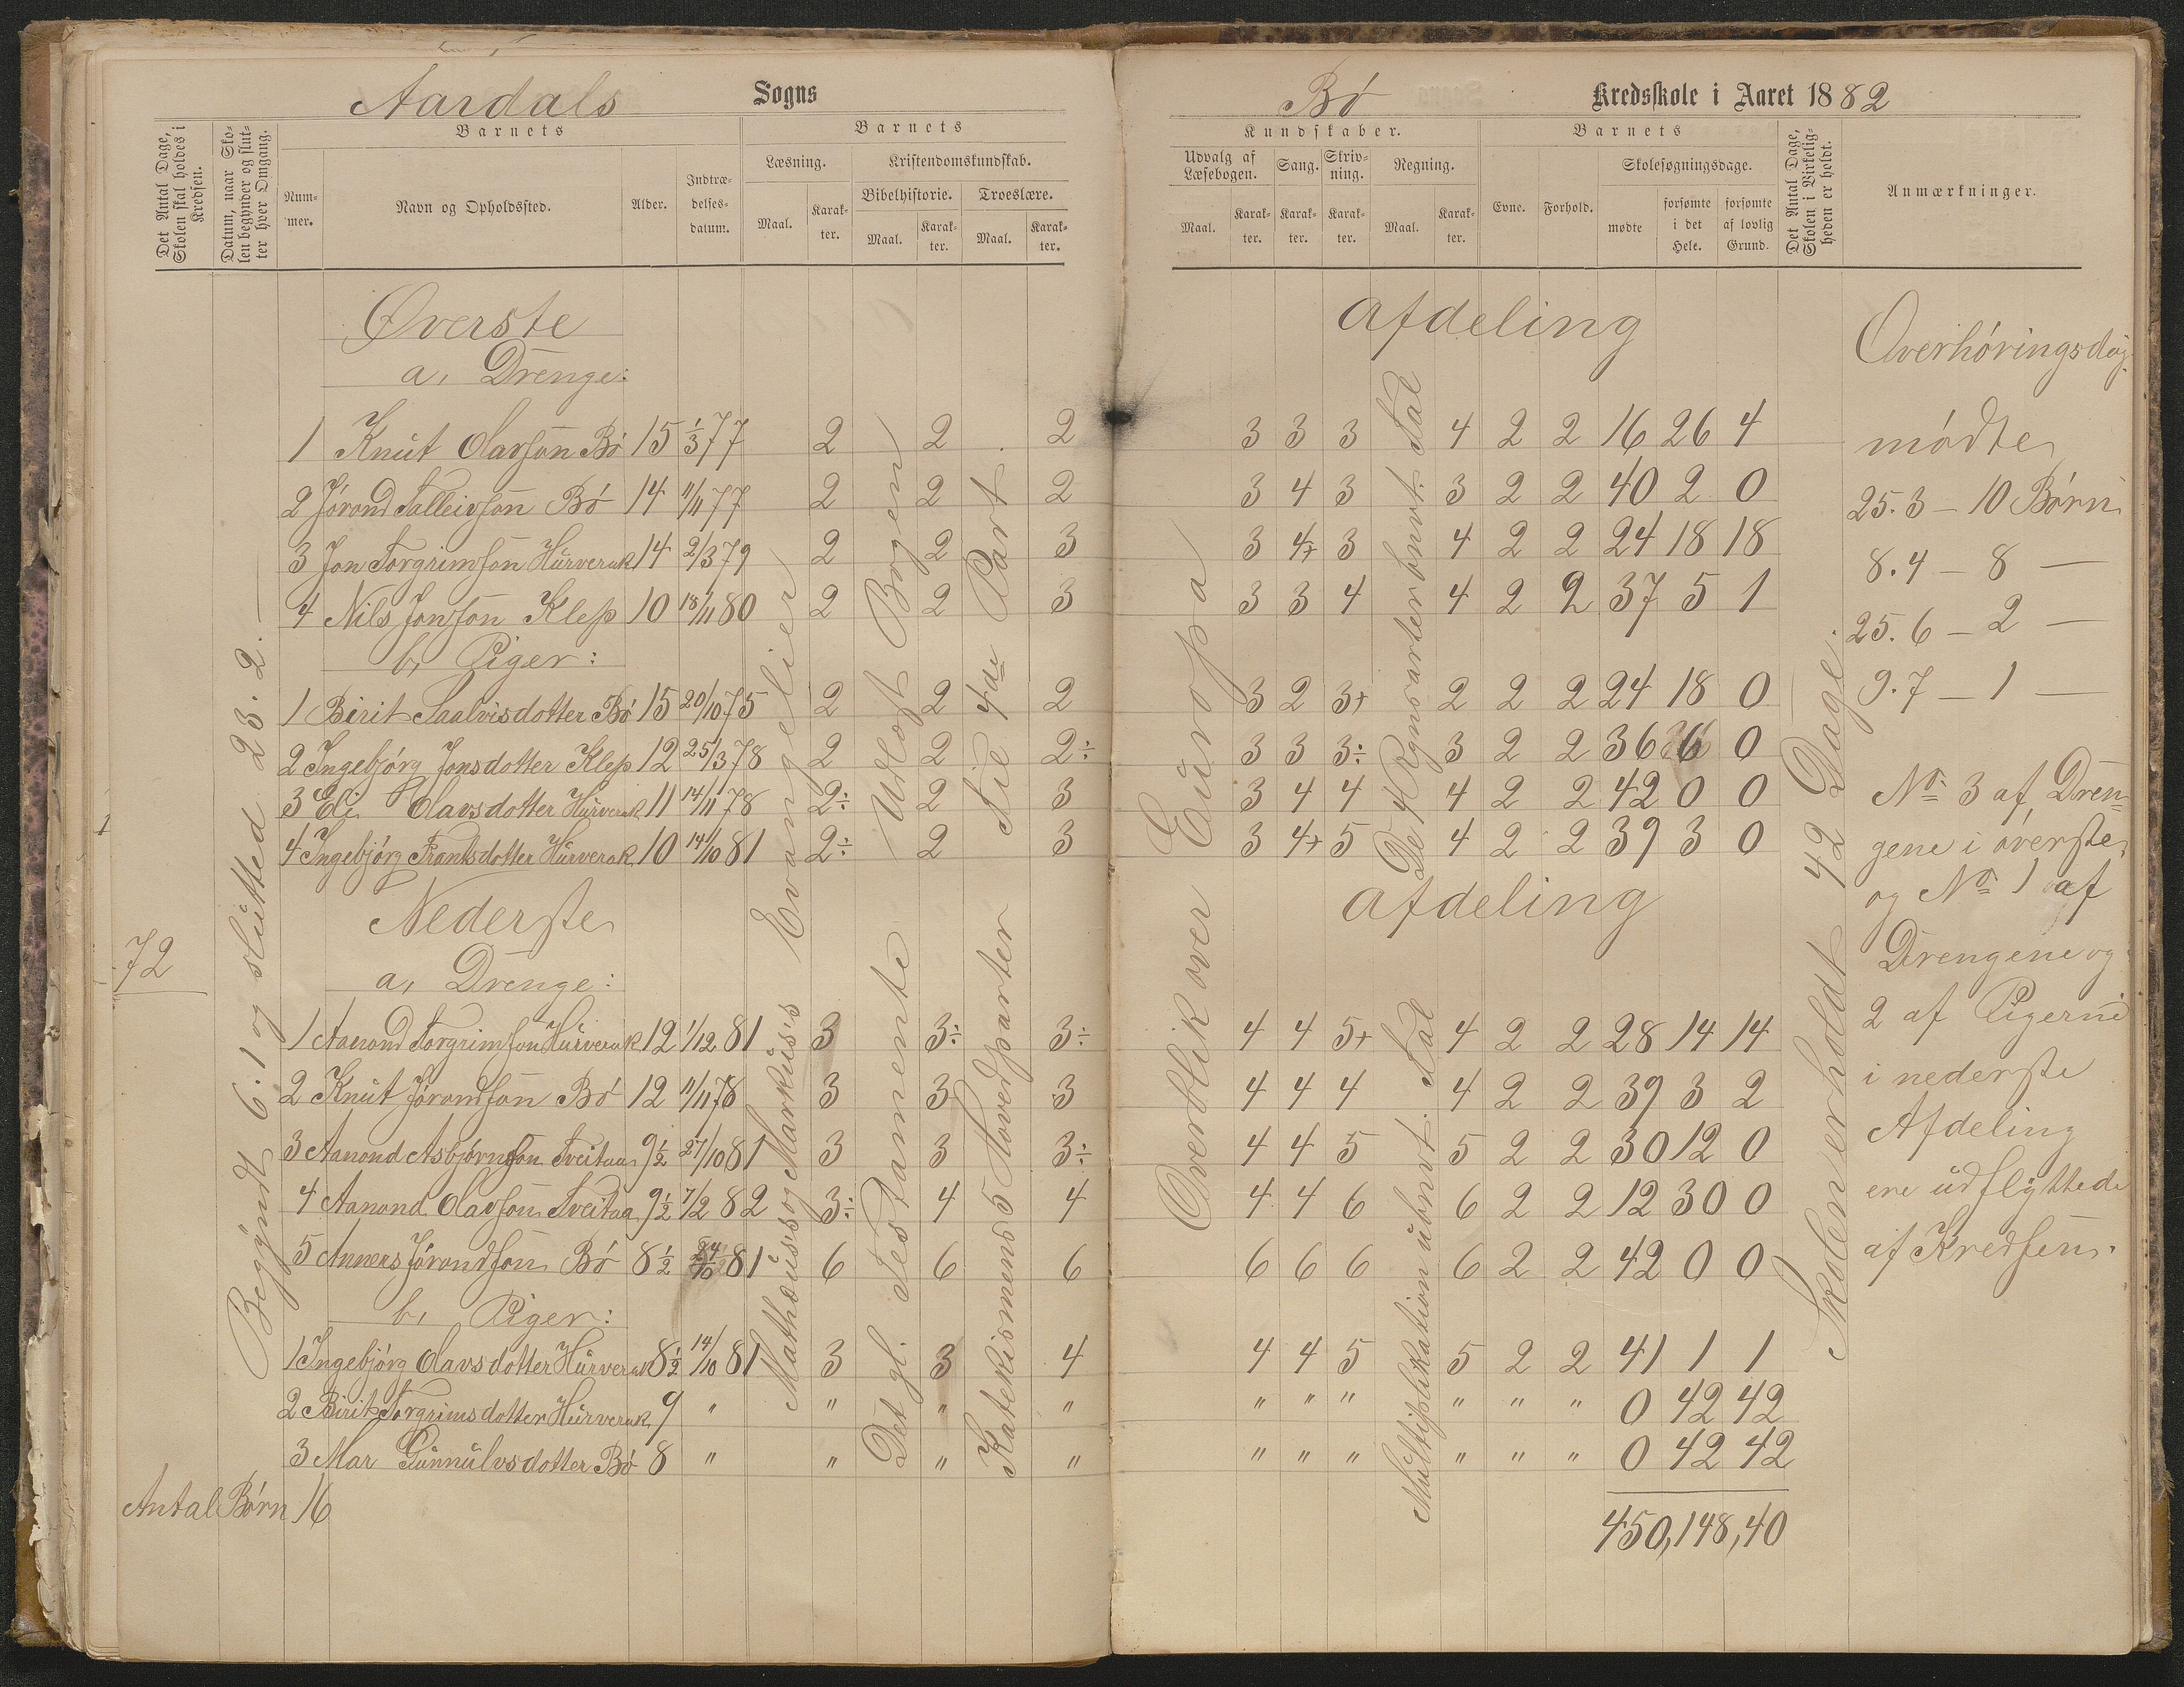 Aardals Sogns
Bø Kredsskole i Aaret 1882
Det Antal Dage, Skolen skal holdes i Kredsen.
Datum, naar Skolen begynder og slutter hver Omgang.
Barnets
Nummer.
Navn og Opholdssted.
Alder.
Indtrædelsesdatum.
Barnets
Læsning.
Maal.
Karakter.
Kristendomskundskab.
Bibelhistorie.
Maal.
Karakter.
Troeslære.
Maal.
Karakter.
Kundskaber.
Udvalg af Læsebogen.
Maal.
Karakter.
Sang.
Karakter.
Skrivning.
Karakter.
Regning.
Maal.
Karakter.
Barnets
Evne.
Forhold.
Skolesøgningsdage.
mødte
forsømte i det Hele.
forsømte af lovlig Grund.
Det Antal Dage, Skolen i Virkeligheden er holdt.
Anmærkninger.
72
Begyndt 6.1 og slutted 23.2.
Øverste Afdeling
a, Drenge:
1 Knut Olavsøn Bø 15 1/3 77 2 2 2 3 3 3 4 2 2 16 26 4
2 Jørond Talleivsøn Bø 14 11/11 77 2 2 2 3 4 3 3 2 2 40 2 0
3 Jon Torgrimsøn Hurverak 14 2/3 79 2 2 3 3 4+ 3 4 2 2 24 18 18
4 Nils Jonsøn Klep 10 18/11 80 2 2 3 3 3 4 4 2 2 37 5 1
b, Piger:
1 Birit Saalvisdotter Bø 15 20/10 75 2 2 2 3 2 3+ 2 2 2 24 18 0
2 Ingebjørg Jonsdotter Klep 12 25/3 78 2 2 2÷ 3 3 3÷ 3 2 2 36 6 0
3 Eli Olavsdotter Hurverak 11 14/11 78 2÷ 2 3 3 4 4 4 2 2 42 0 0
4 Ingebjørg Frantsdotter Hurverak 10 14/10 81 2÷ 2 3 3 4+ 5 4 2 2 39 3 0
Nederste Afdeling
a, Drenge:
1 Aanond Torgrimsøn Hurverak 12 1/12 81 3 3÷ 3÷ 4 4 5+ 4 2 2 28 14 14
2 Knut Jørondsøn Bø 12 11/11 78 3 3 3 4 4 4 4 2 2 39 3 2
3 Aanond Asbjørnsøn Tveitaa 9½ 27/10 81 3 3 3÷ 4 4 5 5 2 2 30 12 0
4 Aanond Olavsøn Tveitaa 9½ 7/2 82 3÷ 4 4 4 4 6 6 2 2 12 30 0
5 Anners Jørondsøn Bø 8½ 24/10 81 6 6 6 6 6 6 6 2 2 42 0 0
b, Piger:
1 Ingebjørg Olavsdotter Hurverak 8½ 14/10 81 3 3 4 4 4 5 5 2 2 41 1 1
2 Birit Torgrimsdotter Hurverak 9 " " " " " " " " " " 0 42 42
3 Mar Gunnulvsdotter Bø 8 " " " " " " " " " " 0 42 42
Antal Børn 16
450, 148, 40
Mathæus's og Markus's Evangelier
Det gl. Testamente
Udtog Bogen
Katekismens 5 Hovedparter
til 4de Part
Overblik over Europa
De 4 Regnearter i bnvt. Tal
Multiplikation i ubnvt. Tal
Skolen er holdt 42 Dage.
Overhøringsdag.
mødte
25.3 – 10 Børn
8.4 – 8 –
25.6 – 2 –
9.7 – 1 –
No 3 af Dren=
gene i øverste
og No 1 af
Drengene og
2 af Pigerne
i nederste
Afdeling
ere udflyttede
af Kredsen.